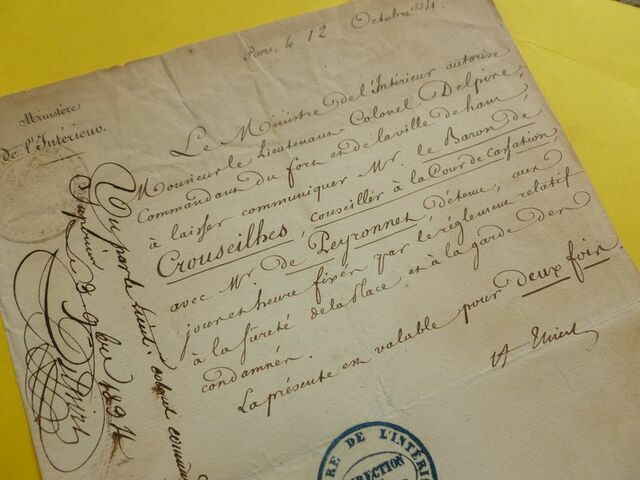 Paris, le 12 Octobre 1834
Ministère
de l'Intérieur.
Le Ministre de l'Intérieur autorise
Monsieur le Lieutenant Colonel Delpire,
Commandant du fort et de la ville de ham
à laisser communiquer Mr. le Baron de
Crouseilhes, conseiller à la Cour de Cassation,
avec Mr. de Peyronnet, détenu, aux
jour et heure fixés par le réglement relatif
à la sûreté de la place et à la garde des
condamnés.
La présente est valable pour deux fois.
A Thiers
Vu par le Lieut. Colonel comm
1834
RE DE L'INTÉRI
DIRECTION